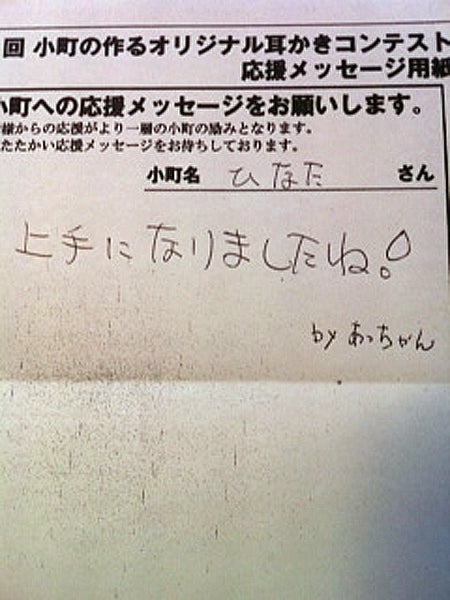 回 小町の作るオリジナル耳かきコンテスト
応援メッセージ用紙
小町への応援メッセージをお願いします。
様からの応援がより一層の小町の励みとなります。
たたかい応援メッセージをお待ちしております。
小町名 ひなた さん
上手になりましたね!
by あっちゃん